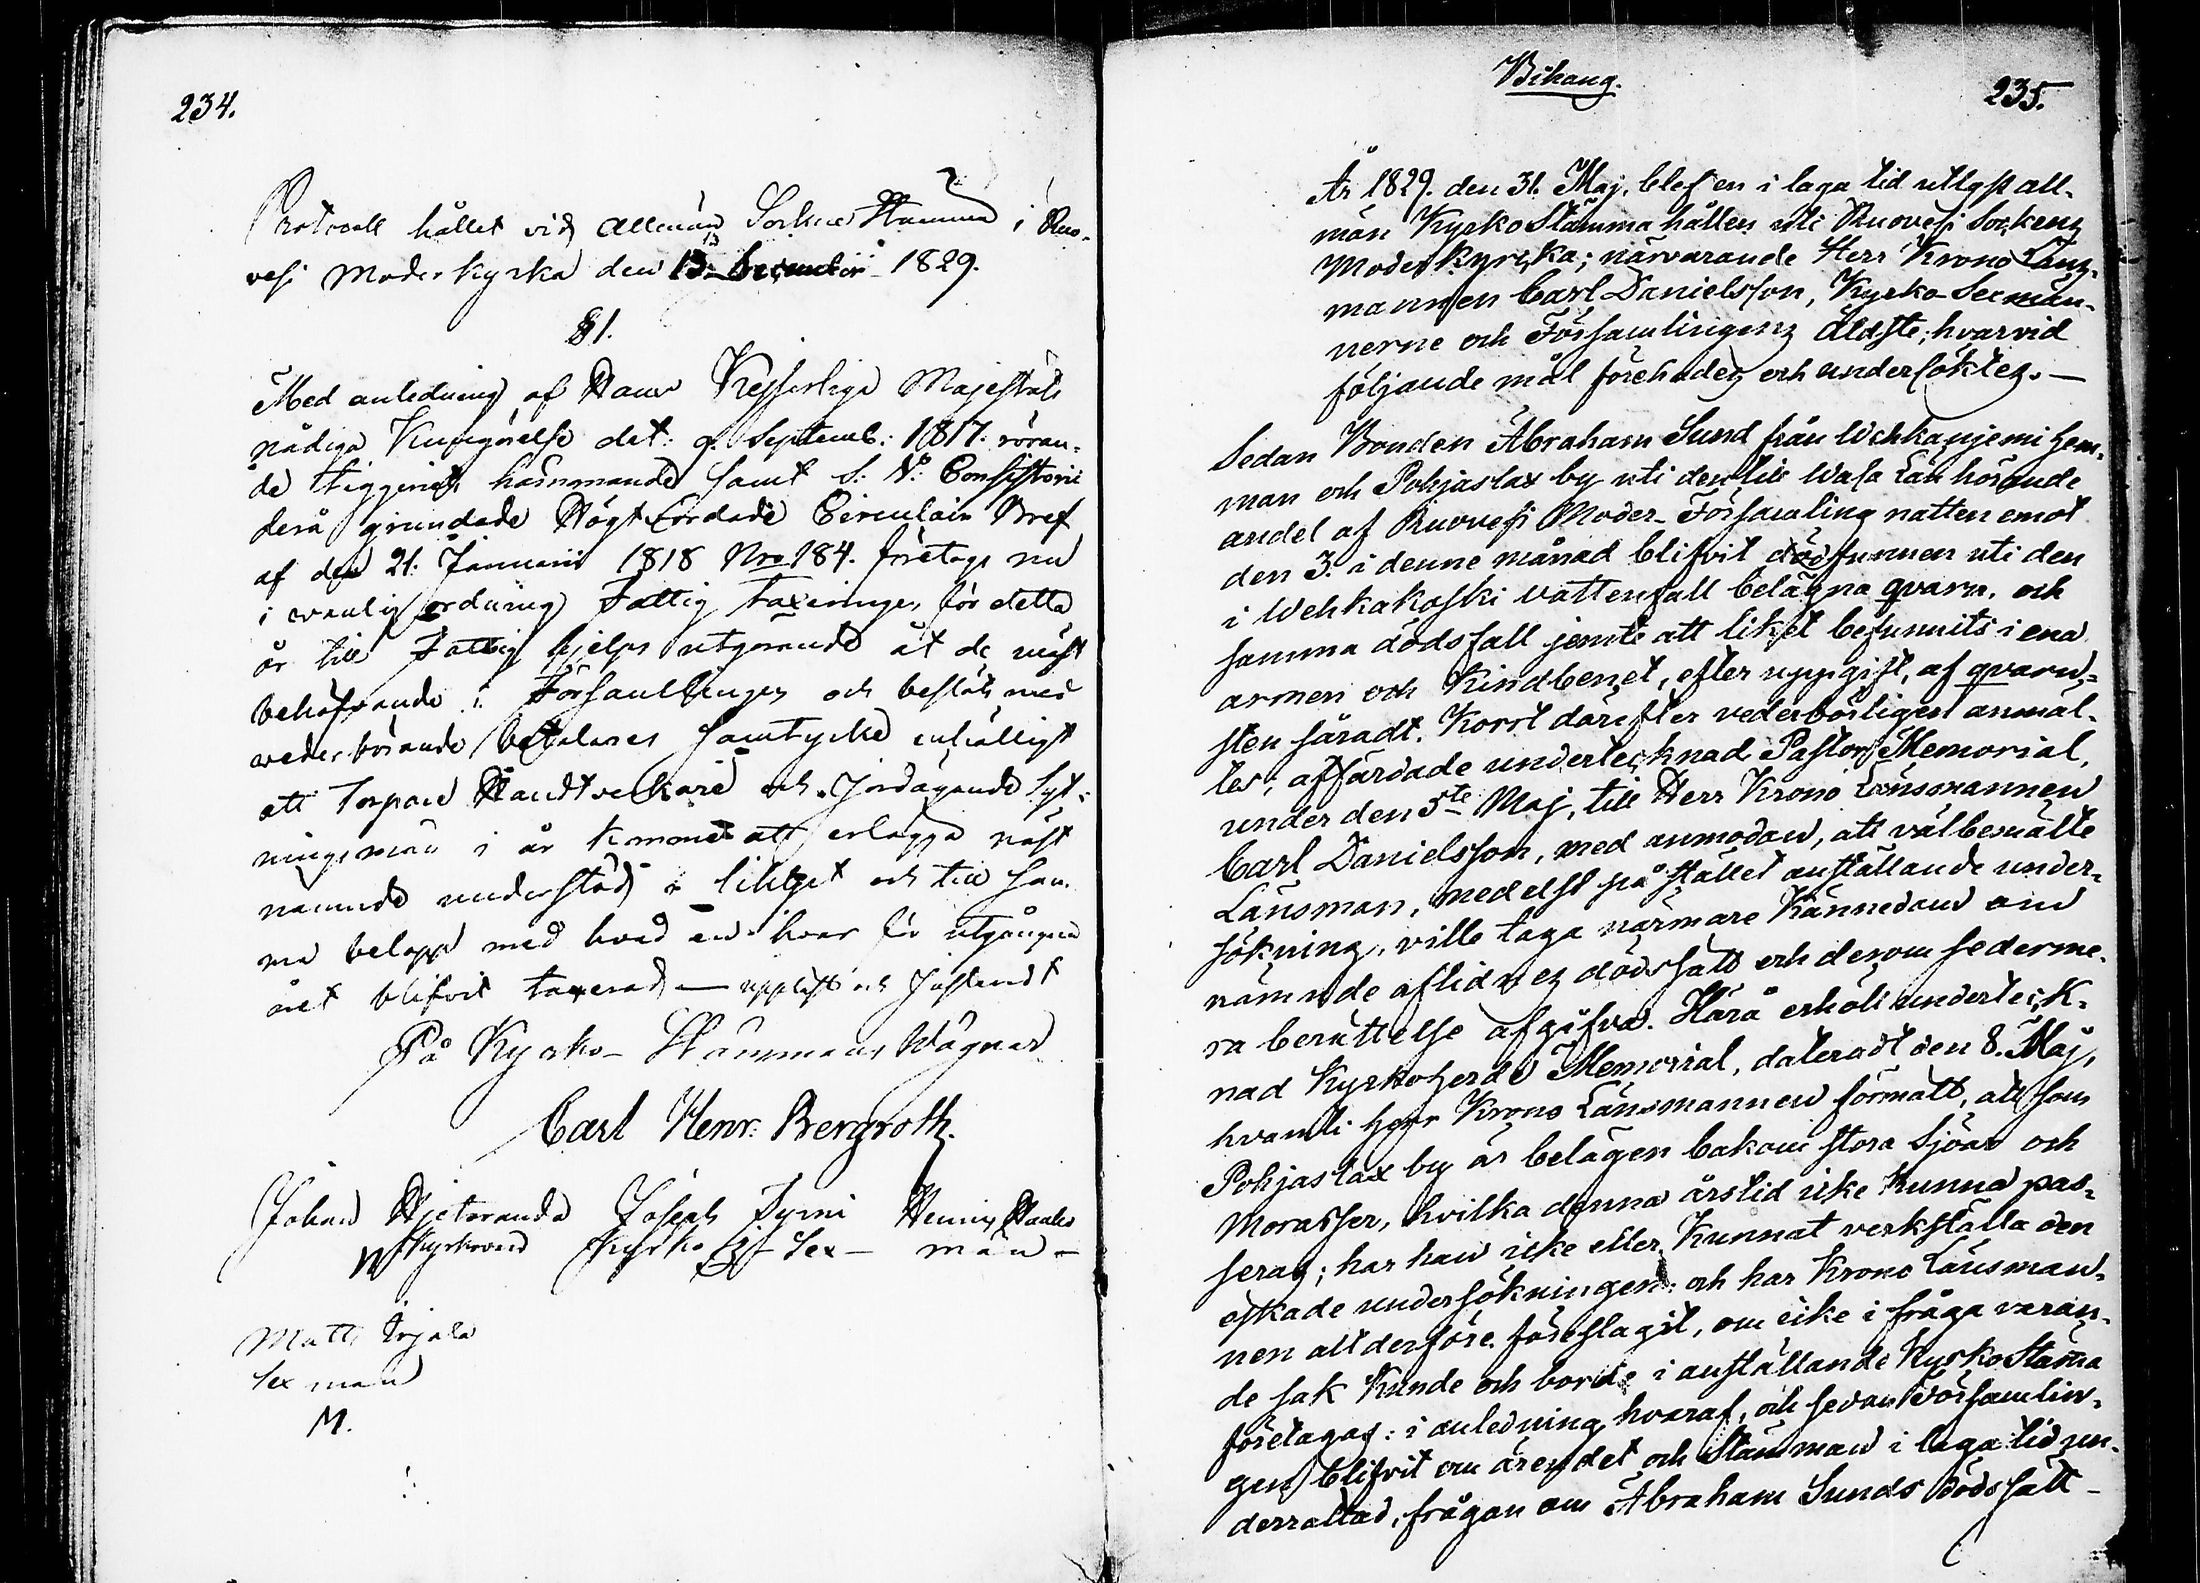 234.
Protocoll hållet vid allmän Sockne Stämma i Ruo-
vesi Moder kyrka den 13 December 1829.
§ 1.
Med anledning af Hans Kejserliga Majestäts
nådiga Kungörelse dat: 9. Septemb: 1817. röran-
de tiggeriets hämmande samt S: V: Consistorii
derå grundade Högt Lärdade Circulair Bref
af den 21: Januarii 1818 Nro 184. företogs nu
i vanlig ordning Fattig taxeringen för detta
år till Fattig hjelps utgörande åt de mäst
behöfvande i Församlingen och beslöts med
wederbörande betalares samtycke enhälligt
att Torpare Handtverkare och Jordägande Syt-
ningsmän i år komme att erlägga näst
nämnde understöd i likhet och till sam-
ma belopp med hvad en hvar för utgångna
året blifvit taxerad — uppläst och Justeradt
På Kyrko-Stämmans Wägnar
Carl Henr: Bergroth.
Johan Hjetaranda Joseph Syrni Henrik
Kyrkovärd Kyrko Sex- män-
Matts Erjala
Sex man
M.
Bihang.
235.
År 1829. den 31. Maj, blef en i laga tid utlyst all-
män Kyrko Stämma hållen uti Ruovesi Sockens
Moderkyrcka; närvarande Herr Krono Läns-
mannen Carl Danielsson, Kyrko-Sexmän-
nerne och Församlingens äldste; hvarvid
följande mål förehades och undersöktes. —
Sedan Bonden Abraham Sund från Wehkaniemi hem-
man och Pohjaslax by uti den till Wasa Län hörande
andel af Ruovesi Moder-Församling natten emot
den 3. i denne månad blifvit död funnen uti den
i Wehkakoski vattenfall belägna qvarn, och
samma dödsfall jemte att liket befunnits i ena
armen och Kindbenet, efter uppgift, af qvarn-
sten såradt, Kort därefter vederbörligen anmäl-
tes; affärdade undertecknad Pastor Memorial,
under den 5te Maj, till Herr Krono Länsmannen
Carl Danielsson, med anmodan, att välbemälte
Länsman, medelst på stället anställande under-
sökning, ville taga närmare Kännedom om
nämnde aflidnes dödssätt och derom sederme-
ra berättelse afgifva. Härå erhölt underteck-
nad Kyrkoherde Memorial, dateradt den 8. Maj,
hvaruti herr Krono Länsmannen förmält, att som
Pohjaslax by är belägen bakom stora Sjöar och
Morasser, hvilka denna årstid icke kunna pas-
seras; har han icke eller Kunnat verkställa den
äskade undersökningen: och har Krono Länsman-
nen alt derföre föreslagit, om icke i fråga varan-
de sak Kunde och borde i anställande Kyrko Stäma
företagas: i anledning hvaraf, och sedan Församlin-
gen blifvit om ärendet och Stämman i laga tid un-
derrättad, frågan om Abraham Sunds dödssätt-